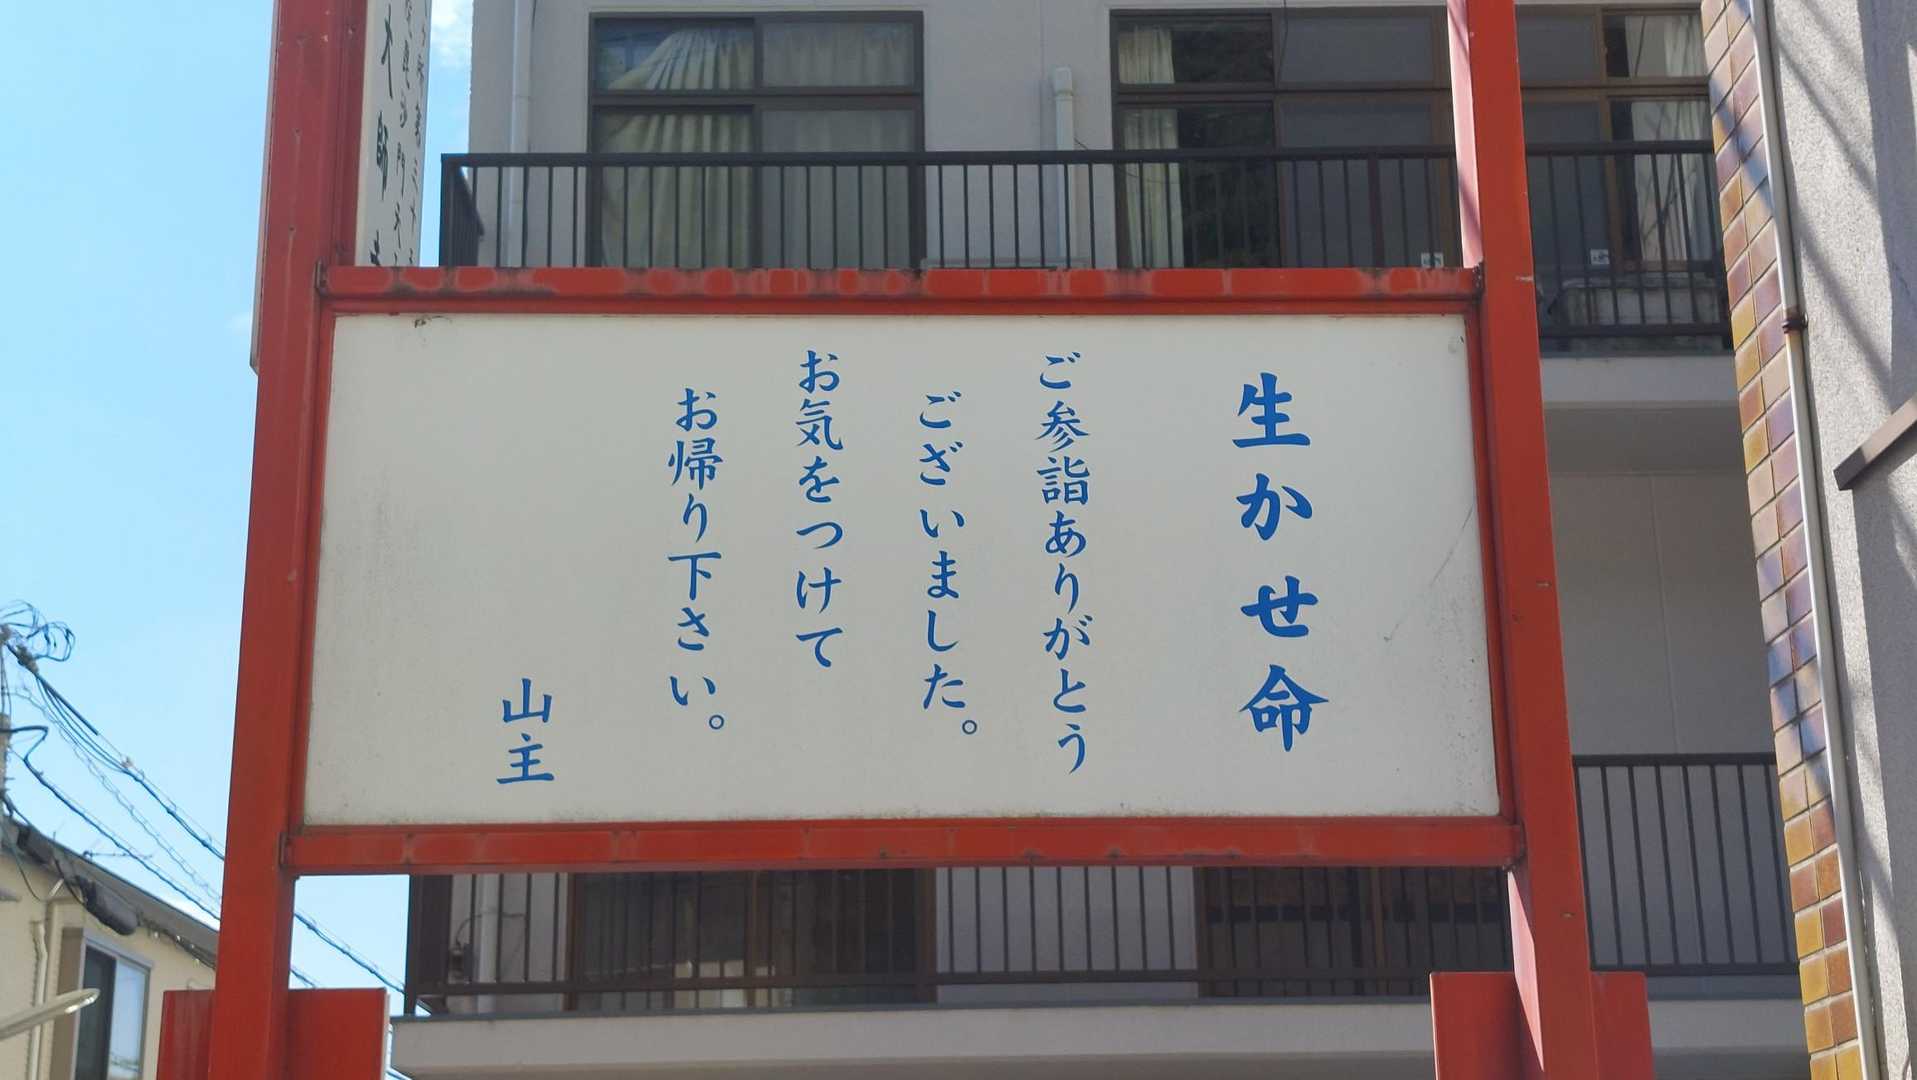 生かせ命
ご参詣ありがとう
ございました。
お気をつけて
お帰り下さい。
山主
大師